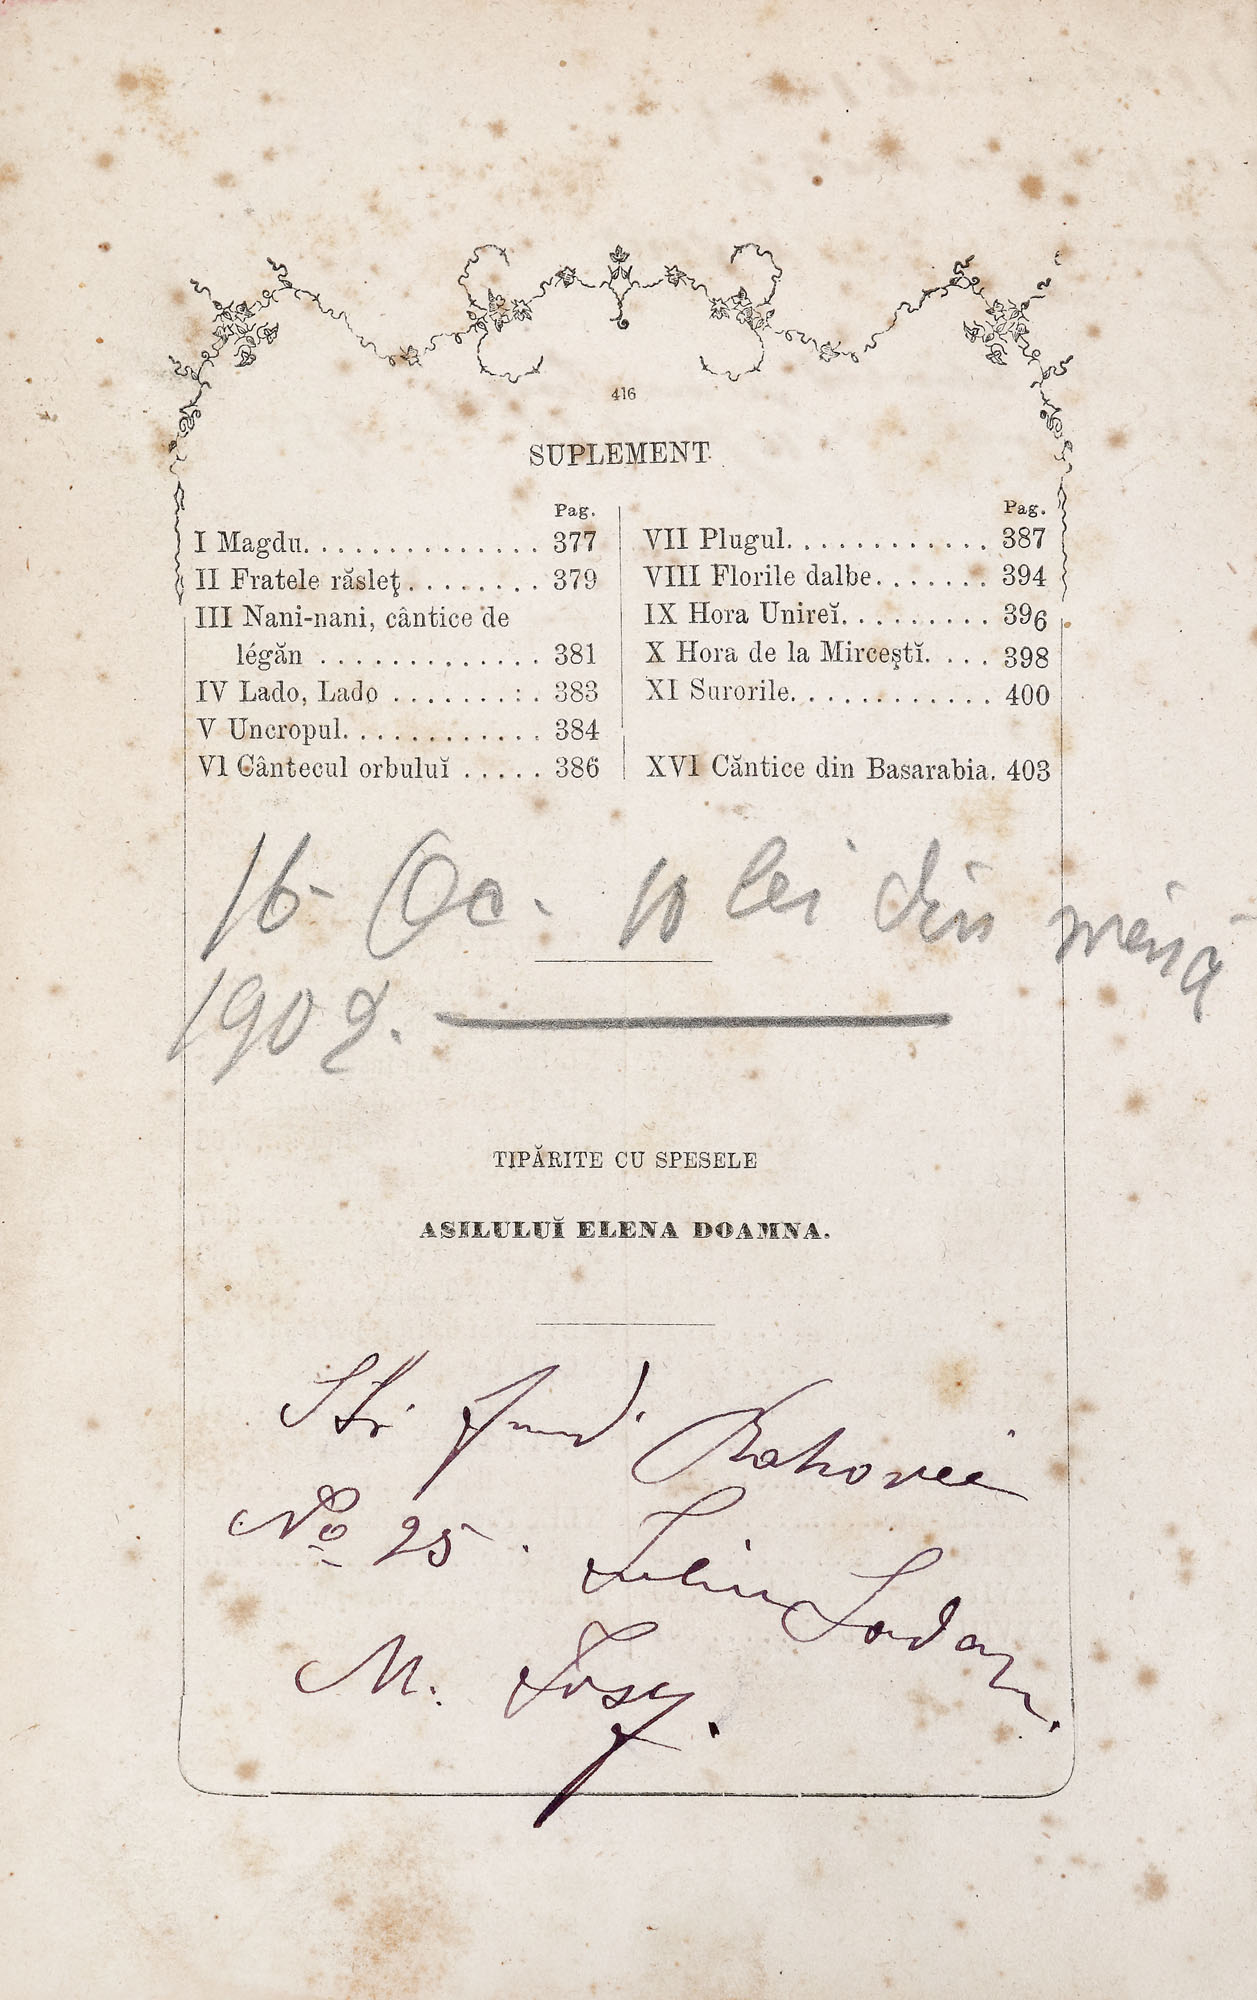 416
SUPLEMENT
Pag.
I Magdu. . . . . . . . . . . . . . 377
II Fratele răsleţ. . . . . . . . 379
III Nani-nani, cântice de
légăn . . . . . . . . . . . . . 381
IV Lado, Lado . . . . . . . : . 383
V Uncropul. . . . . . . . . . . . 384
VI Cântecul orbuluĭ . . . . . 386
Pag.
VII Plugul. . . . . . . . . . . . 387
VIII Florile dalbe. . . . . . . 394
IX Hora Unireĭ. . . . . . . . . 396
X Hora de la Mirceştĭ. . . . 398
XI Surorile. . . . . . . . . . . . 400
XVI Căntice din Basarabia. 403
16- Oc. 10 lei din mênă
1902.
TIPĂRITE CU SPESELE
ASILULUĬ ELENA DOAMNA.
Str. fund. Rahovei
No 25. Iuliu
M. Iosef.